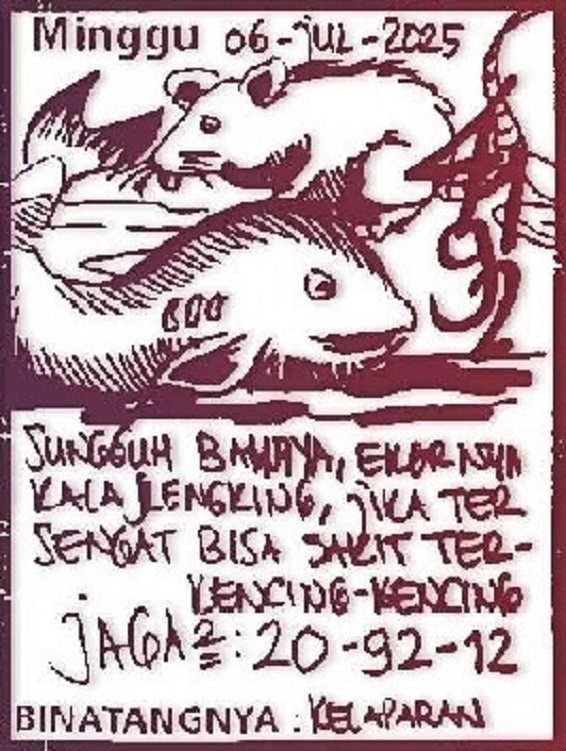 Minggu 06-JUL-2025
SUNGGUH BAHAYA, EKORNYA
KALA JLENGKING, JIKA TER
SENGAT BISA SAKIT TER-
KENCING-KENCING
JAGA²: 20-92-12
BINATANGNYA : KELAPARAN